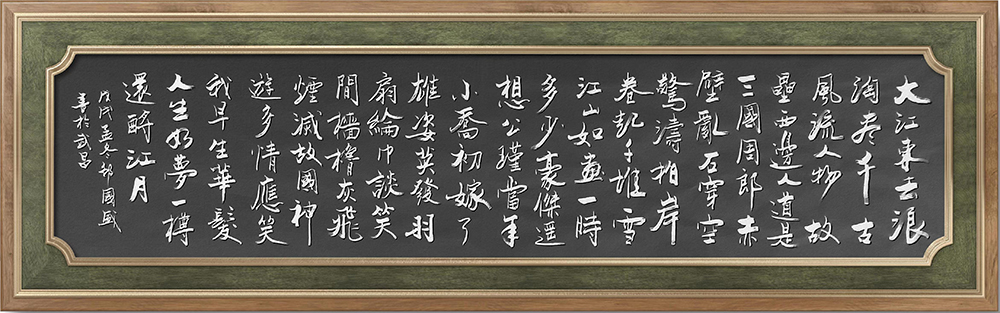 大江東去浪
淘尽千古
風流人物故
壘西邊人道是
三國周郎赤
壁亂石穿空
驚濤拍岸
卷起千堆雪
江山如畫一時
多少豪傑遥
想公瑾當年
小喬初嫁了
雄姿英發羽
扇綸巾談笑
間檣櫓灰飛
煙滅故國神
遊多情應笑
我早生華髮
人生如夢一樽
還酹江月
戊戌孟冬鄒國盛
書於武昌